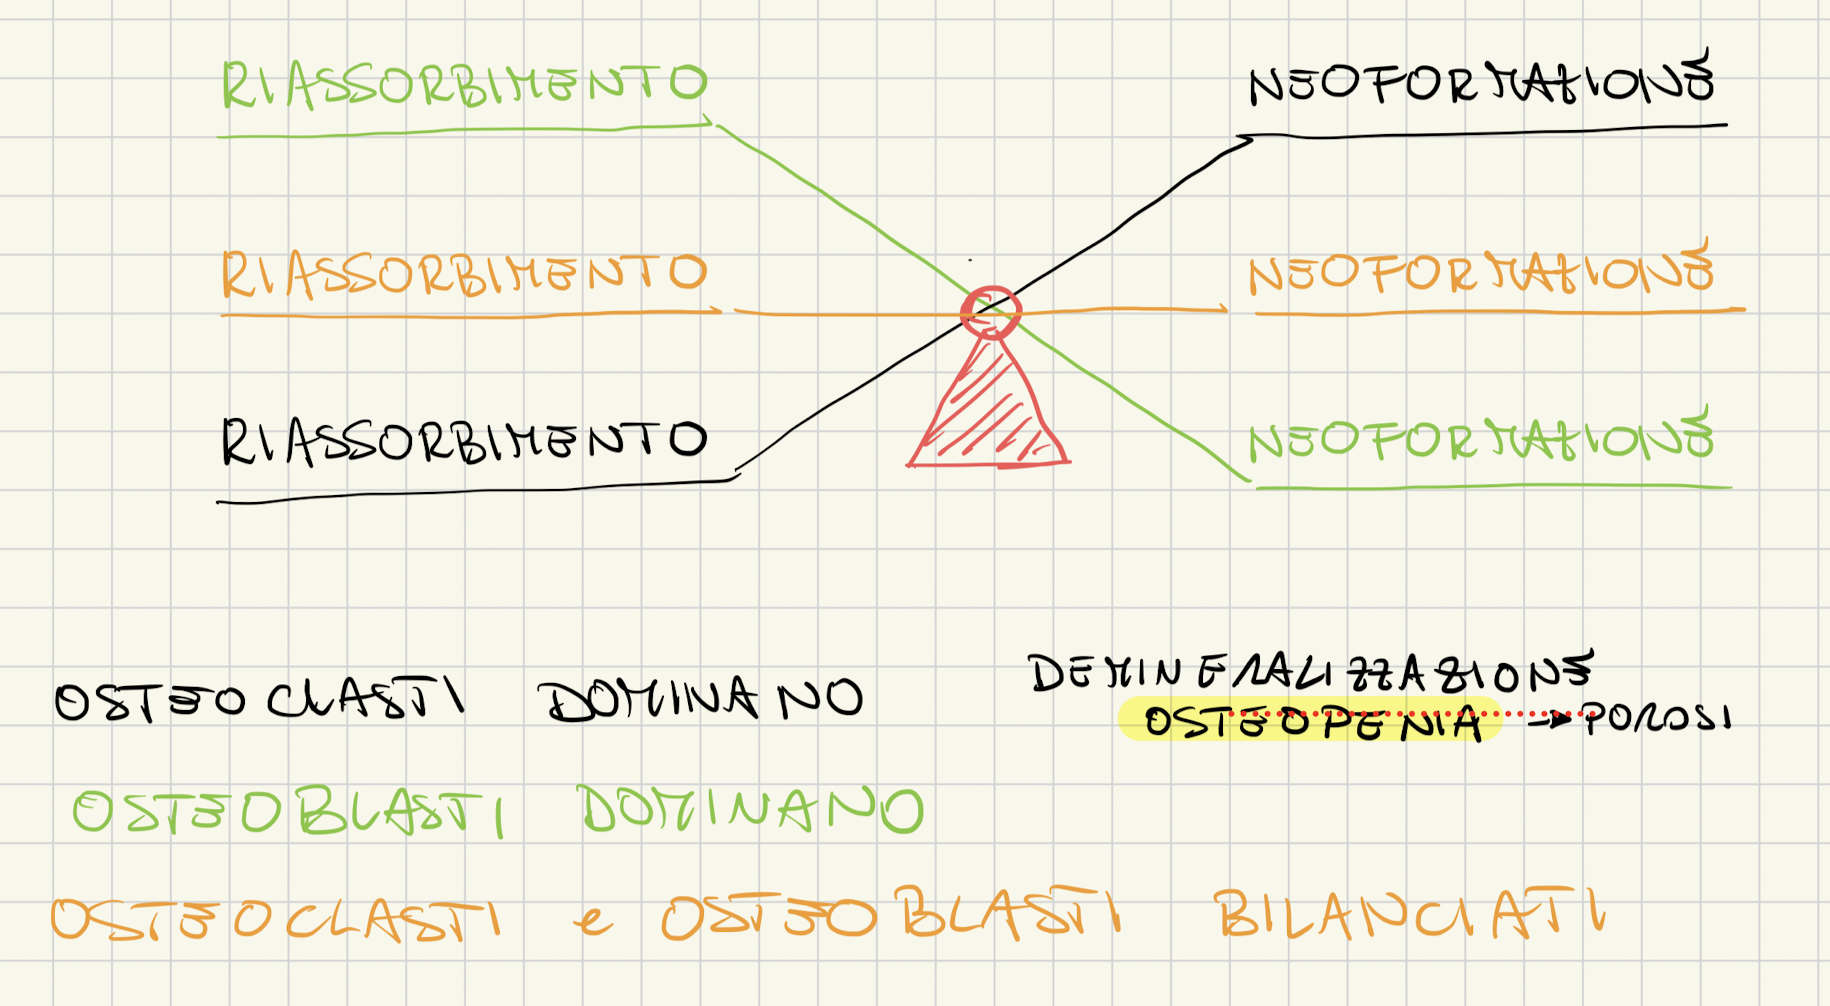 RIASSORBIMENTO NEOFORMAZIONE
RIASSORBIMENTO NEOFORMAZIONE
RIASSORBIMENTO NEOFORMAZIONE
OSTEOCLASTI DOMINANO
DEMINERALIZZAZIONE
OSTEOPENIA → POROSI
OSTEOBLASTI DOMINANO
OSTEOCLASTI e OSTEOBLASTI BILANCIATI